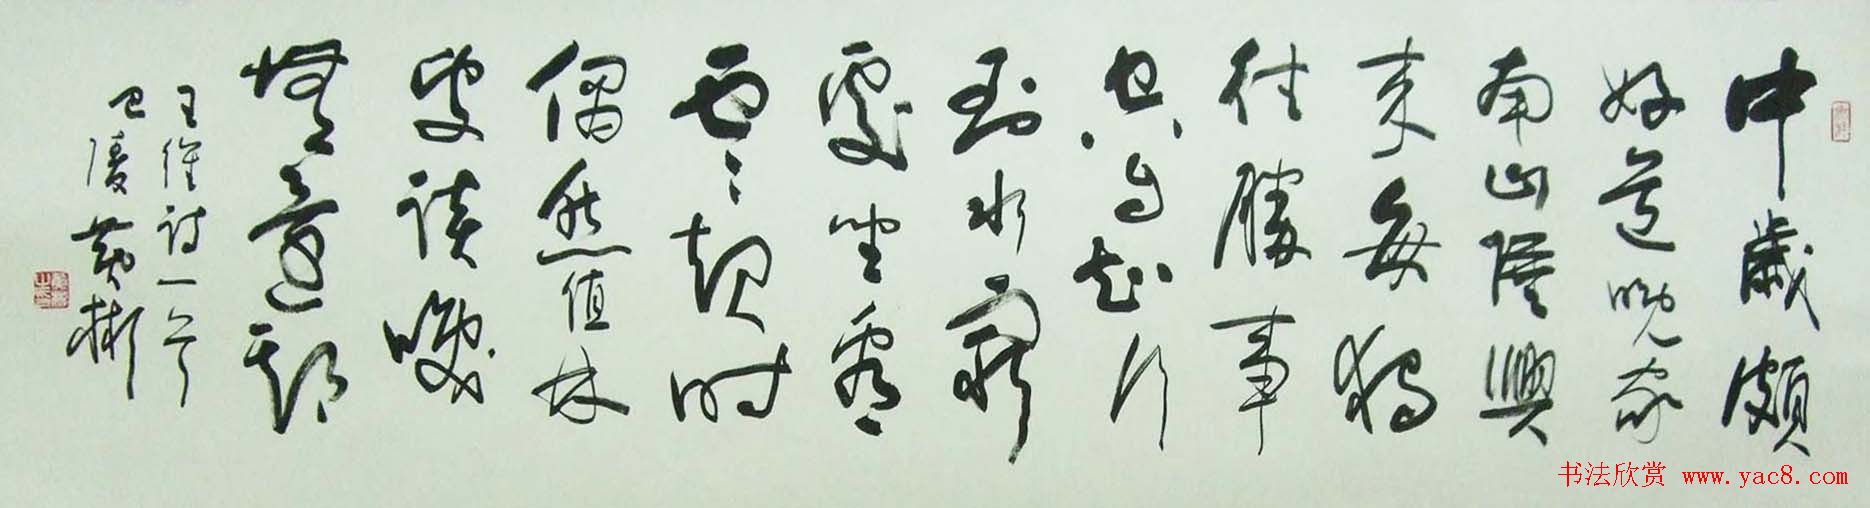 中歲頗
好道晚家
南山陲興
来每獨
往勝事
空自知行
到水窮
處坐看
雲起时
偶然值林
叟談咲
無還期
王維詩一首
巴陵黄彬
书法欣赏 www.yac8.com